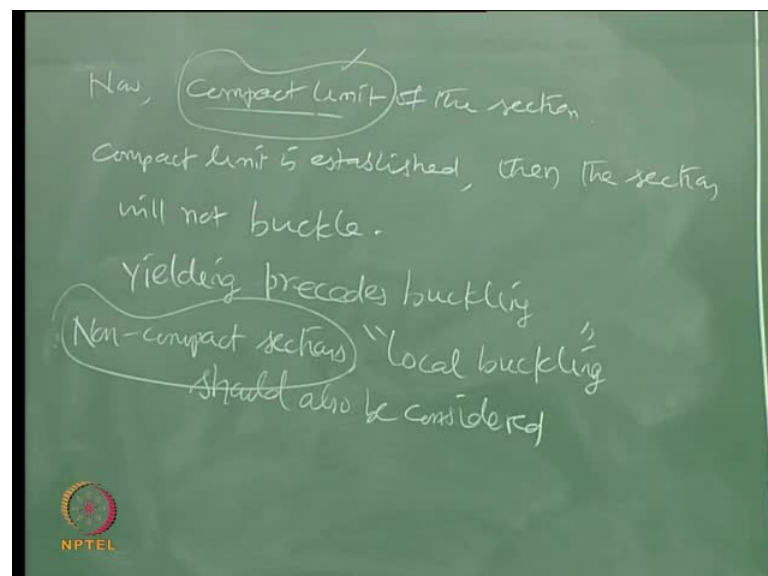 Now, Compact limit of the section.
Compact limit is established, then the section
will not buckle.
Yielding precedes buckling
Non-compact sections "local buckling"
should also be considered
NPTEL